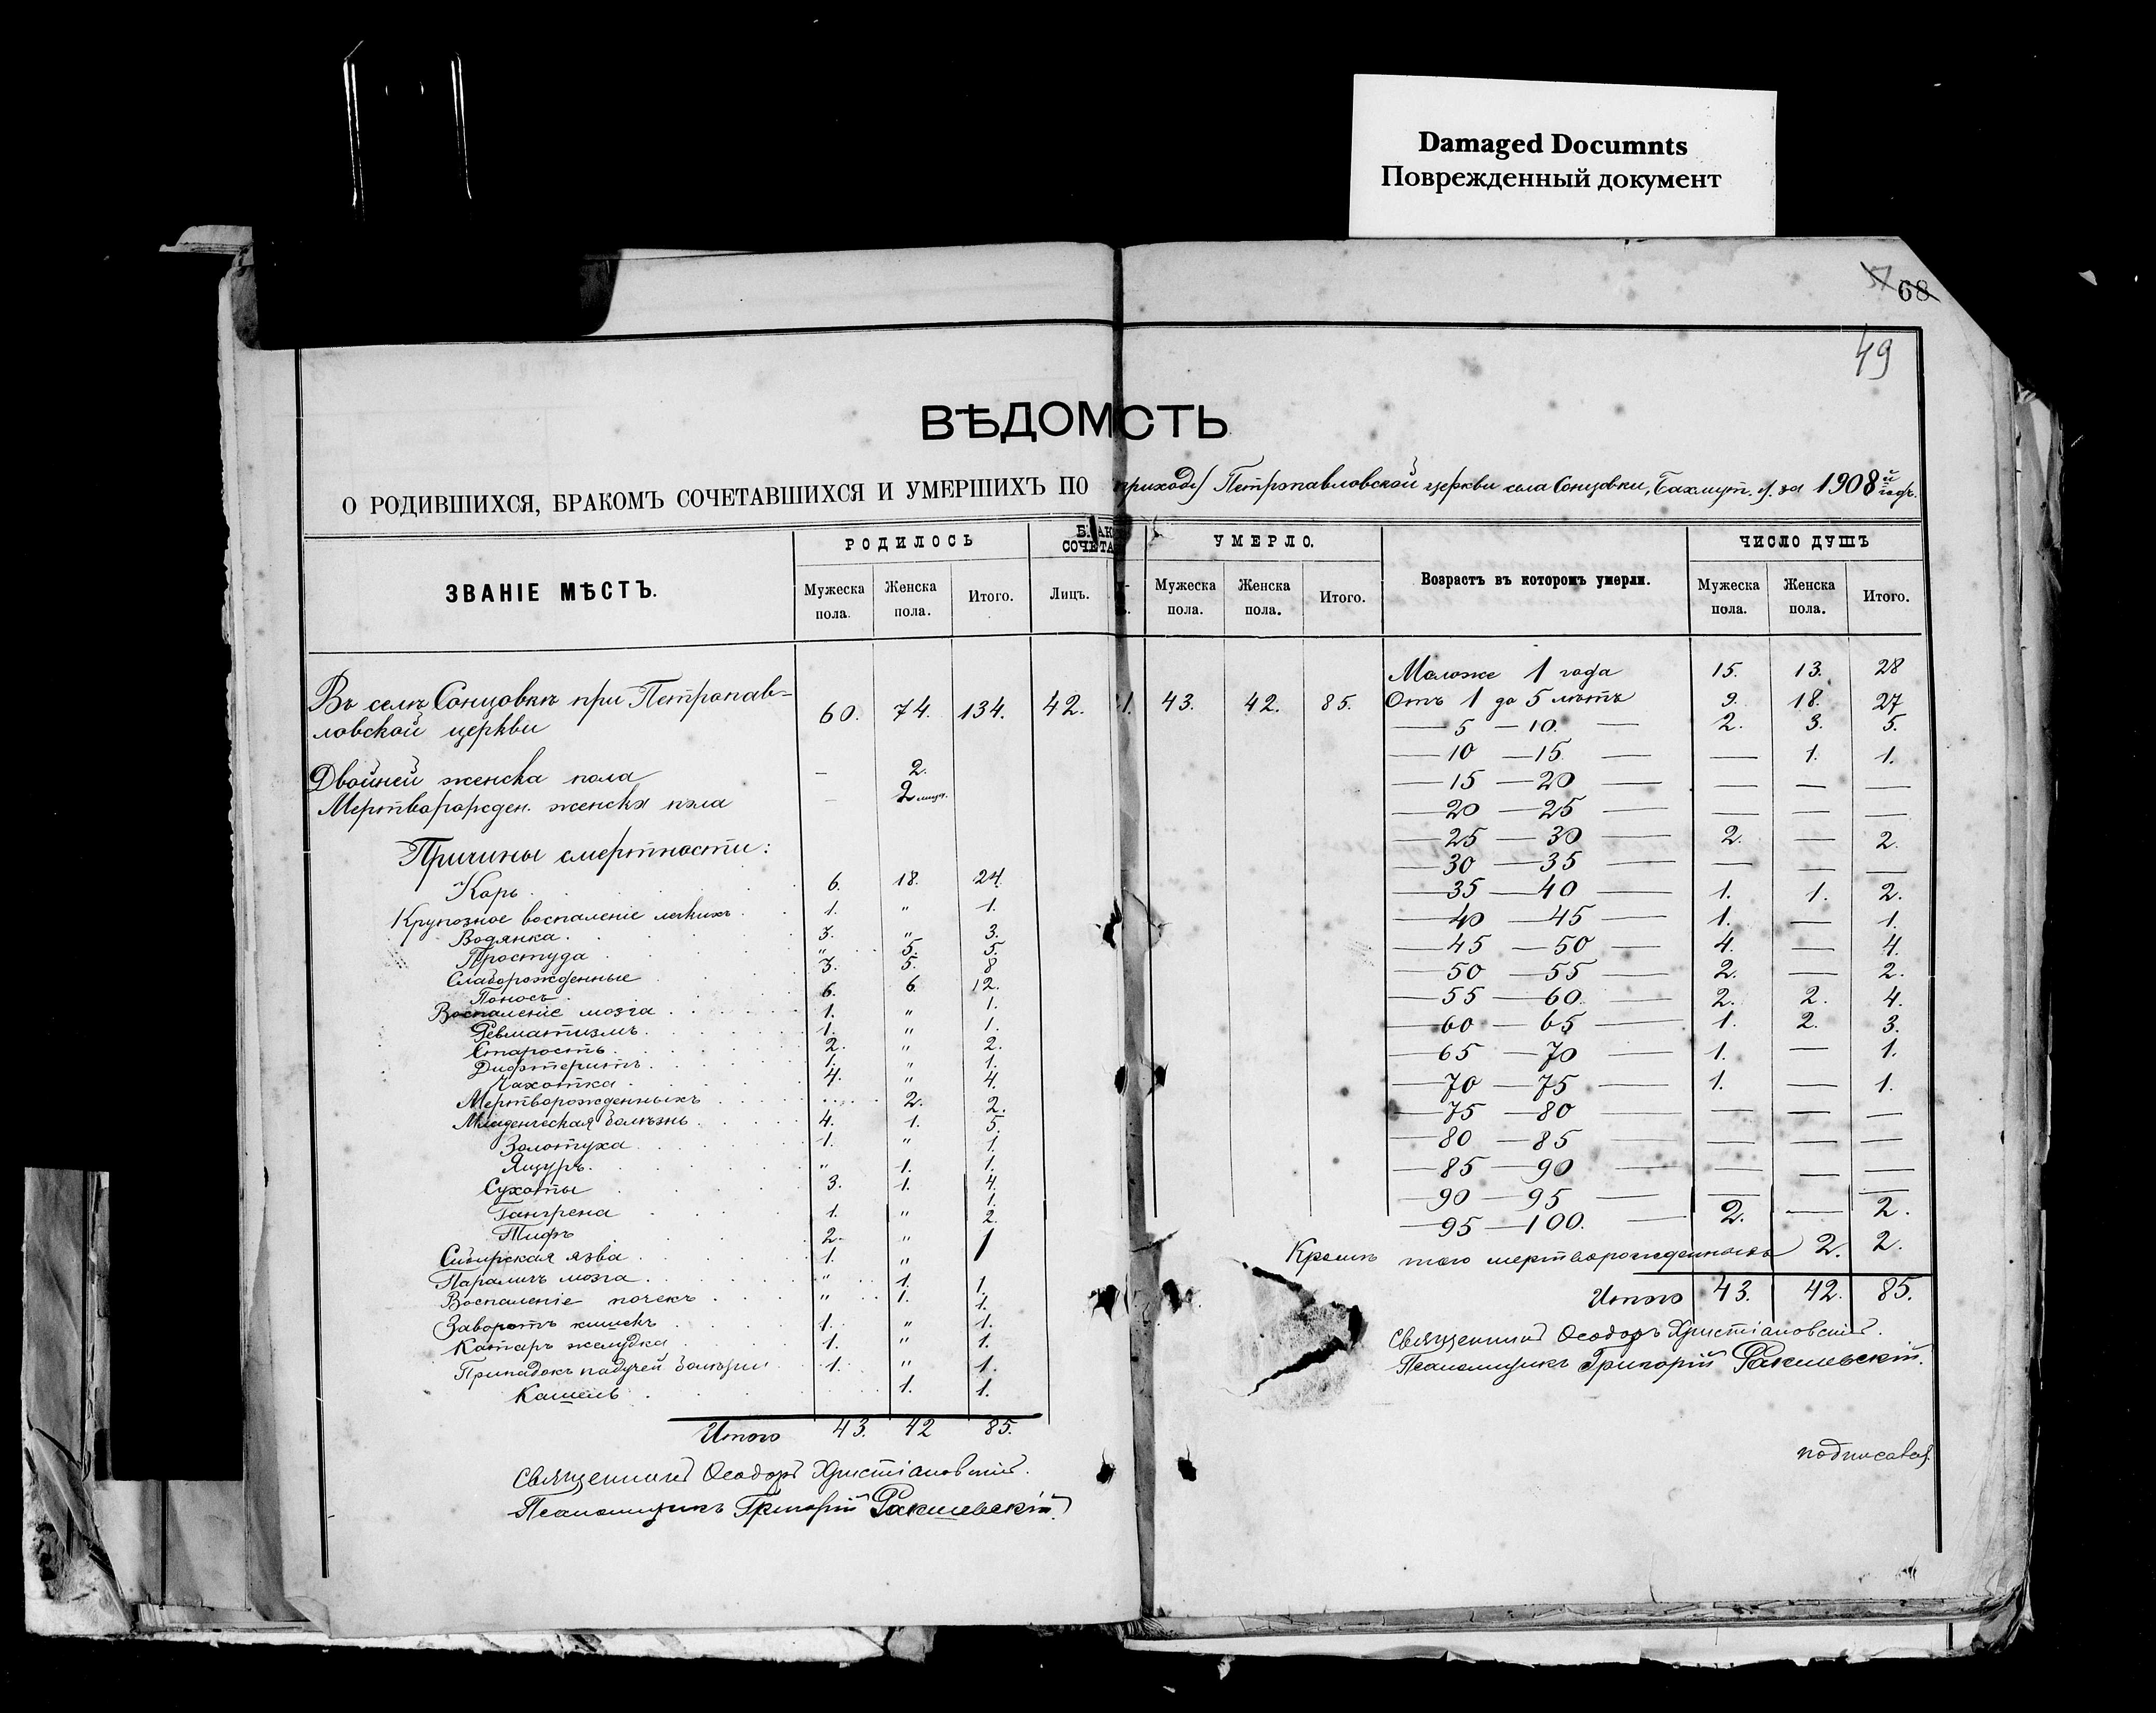 Damaged Documnts
Поврежденный документ
68
49
ВѢДОМСТЬ
О РОДИВШИХСЯ, БРАКОМЪ СОЧЕТАВШИХСЯ И УМЕРШИХЪ ПО приходу Петропавловской церкви села Сонцовки, Бахмут. у. за 1908й годъ.
ЗВАНІЕ МѢСТЪ.
РОДИЛОСЬ
Мужеска пола.
Женска пола.
Итого.
БРАК СОЧЕТА
Лицъ.
УМЕРЛО.
Мужеска пола.
Женска пола.
Итого.
Возрастъ въ которомъ умерли.
ЧИСЛО ДУШЪ
Мужеска пола.
Женска пола.
Итого.
Въ селѣ Сонцовкѣ при Петропав-
ловской церкви 60. 74. 134. 42. 21. 43. 42. 85.
Двойней женска пола — 2.
Мертворожден. женска пола — 2
Причины смертности:
Корь 6. 18. 24.
Крупозное воспаленіе легкихъ 1. " 1.
Водянка 3. " 3.
Простуда " 5. 5.
Слаборожденные 3. 5. 8
Поносъ 6. 6. 12.
Воспаленіе мозга 1. " 1.
Ревматизмъ 1. " 1.
Старость 2. " 2.
Дифтеритъ 1. " 1.
Чахотка 4. " 4.
Мертворожденныхъ 2. 2.
Младенческая болѣзнь 4. 1. 5.
Золотуха 1. " 1.
Ящуръ " 1. 1.
Сухоты 3. 1. 4.
Гангрена 1. " 1.
Тифъ 2. " 2.
Сибирская язва 1. " 1
Параличъ мозга " 1. 1.
Воспаленіе почекъ " 1. 1.
Заворотъ кишекъ 1. " 1.
Катаръ желудка 1. " 1.
Припадокъ падучей болѣзни 1. " 1.
Кашель 1. 1.
Итого 43. 42 85.
Священникъ Ѳеодоръ Христіановскій.
Псаломщикъ Григорій
Моложе 1 года 15. 13. 28
Отъ 1 до 5 лѣтъ 9. 18. 27
— 5 — 10. — 2. 3. 5.
— 10 — 15 — — 1. 1.
— 15 — 20 — — — —
— 20 — 25 — — — —
— 25 — 30 — 2. — 2.
— 30 — 35 — — — —
— 35 — 40 — 1. 1. 2.
— 40 — 45 — 1. — 1.
— 45 — 50 — 4. — 4.
— 50 — 55 — 2. — 2.
— 55 — 60. — 2. 2. 4.
— 60 — 65 — 1. 2. 3.
— 65 — 70 — 1. — 1.
— 70 — 75 — 1. — 1.
— 75 — 80 — — — —
— 80 — 85 — — — —
— 85 — 90 — — — —
— 90 — 95 — — — —
— 95 — 100. — 2. — 2.
Кромѣ того мертворожденныхъ 2. 2.
Итого 43. 42. 85.
Священникъ Ѳеодоръ Христіановскій.
Псаломщикъ Григорій